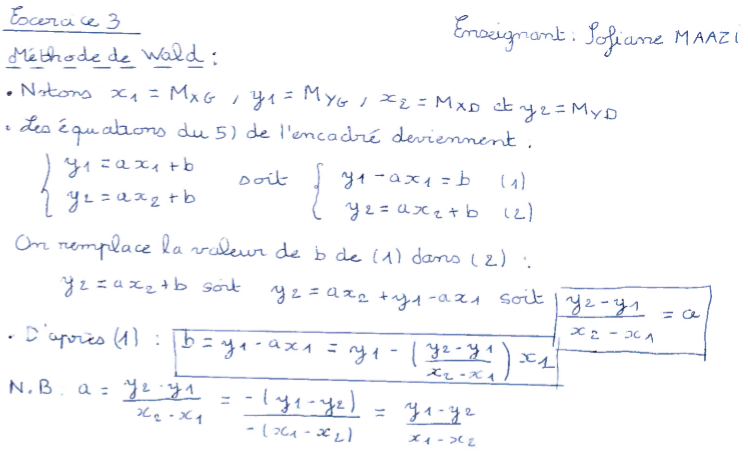 Exercice 3
Enseignant : Sofiane MAAZI
Méthode de Wald :
• Notons x1 = MXG , y1 = MYG , x2 = MXD et y2 = MYD
• Les équations du 5) de l'encadré deviennent .
{ y1 = ax1 + b soit { y1 - ax1 = b (1)
{ y2 = ax2 + b { y2 = ax2 + b (2)
On remplace la valeur de b de (1) dans (2) :
y2 = ax2 + b soit y2 = ax2 + y1 - ax1 soit (y2 - y1)/(x2 - x1) = a
• D'après (1) : b = y1 - ax1 = y1 - ((y2 - y1)/(x2 - x1)) x1
N.B. a = (y2 - y1)/(x2 - x1) = -(y1 - y2)/-(x1 - x2) = (y1 - y2)/(x1 - x2)